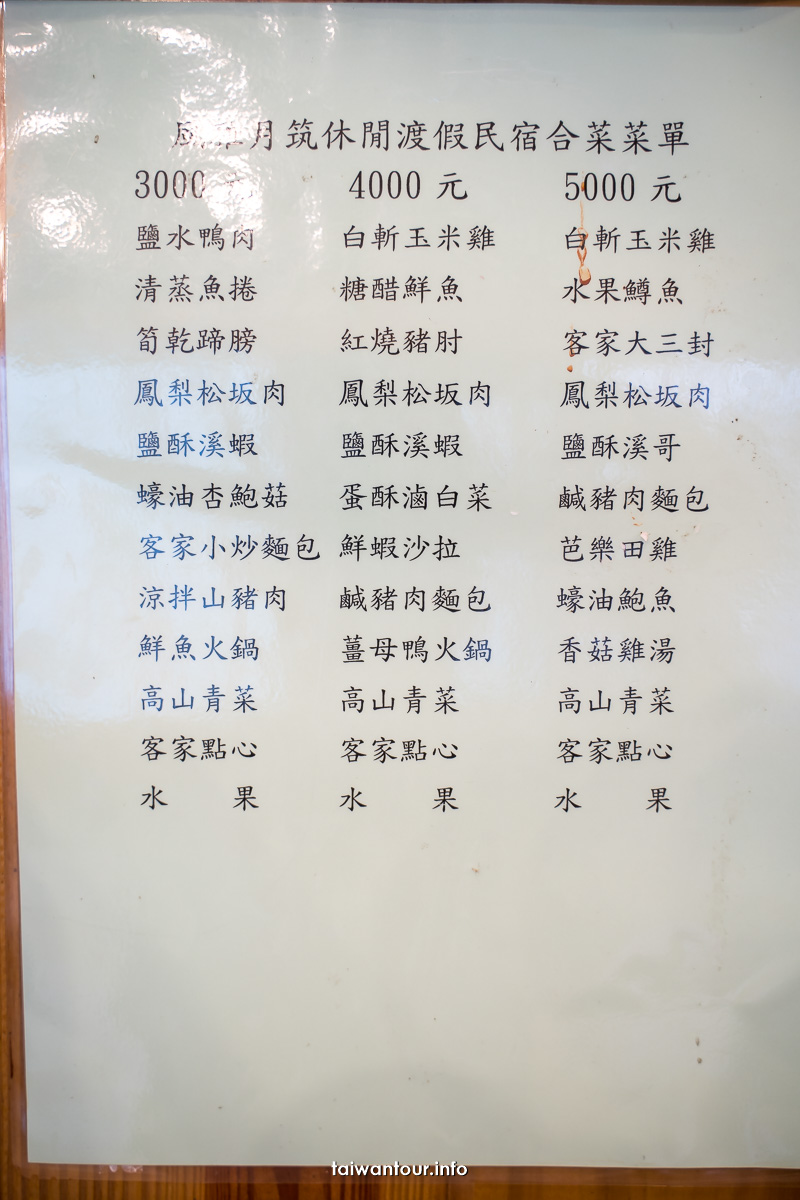 月筑休閒渡假民宿合菜菜單
3000 元 4000 元 5000 元
鹽水鴨肉 白斬玉米雞 白斬玉米雞
清蒸魚捲 糖醋鮮魚 水果鱒魚
筍乾蹄膀 紅燒豬肘 客家大三封
鳳梨松坂肉 鳳梨松坂肉 鳳梨松坂肉
鹽酥溪蝦 鹽酥溪蝦 鹽酥溪哥
蠔油杏鮑菇 蛋酥滷白菜 鹹豬肉麵包
客家小炒麵包 鮮蝦沙拉 芭樂田雞
涼拌山豬肉 鹹豬肉麵包 蠔油鮑魚
鮮魚火鍋 薑母鴨火鍋 香菇雞湯
高山青菜 高山青菜 高山青菜
客家點心 客家點心 客家點心
水 果 水 果 水 果
taiwantour.info